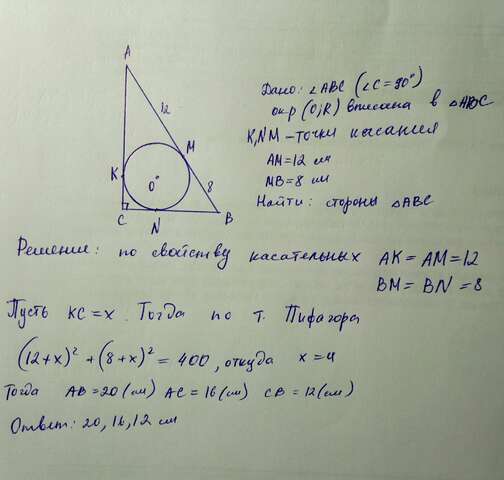 A
12
M
K
O
8
C
N
B
Дано: ∠ABC (∠C=90°)
окр (O,R) вписана в △ABC
K,N M – точки касания
AM=12 см
MB=8 см
Найти: стороны △ABC
Решение: по свойству касательных AK = AM = 12
BM = BN = 8
Пусть KC = x. Тогда по т. Пифагора
(12+x)² + (8+x)² = 400, откуда x=4
Тогда AB = 20 (см) AC = 16 (см) CB = 12 (см)
Ответ: 20, 16, 12 см